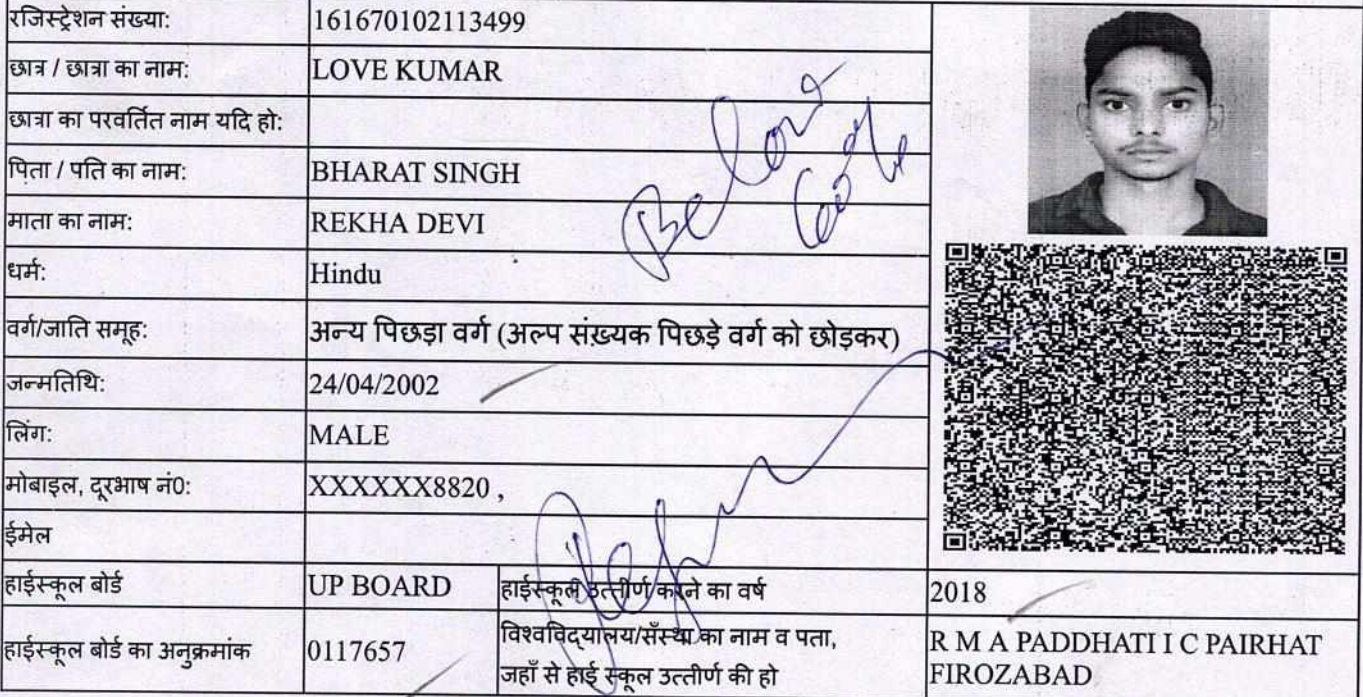 रजिस्ट्रेशन संख्या: 161670102113499
छात्र / छात्रा का नाम: LOVE KUMAR
छात्रा का परवर्तित नाम यदि हो:
पिता / पति का नाम: BHARAT SINGH
माता का नाम: REKHA DEVI
धर्म: Hindu
वर्ग/जाति समूह: अन्य पिछड़ा वर्ग (अल्प संख़्यक पिछड़े वर्ग को छोड़कर)
जन्मतिथि: 24/04/2002
लिंग: MALE
मोबाइल, दूरभाष नं0: XXXXXX8820 ,
ईमेल
हाईस्कूल बोर्ड UP BOARD हाईस्कूल उत्तीर्ण करने का वर्ष 2018
हाईस्कूल बोर्ड का अनुक्रमांक 0117657 विश्वविद्यालय/सँस्था का नाम व पता,
जहाँ से हाई स्कूल उत्तीर्ण की हो
R M A PADDHATI I C PAIRHAT
FIROZABAD